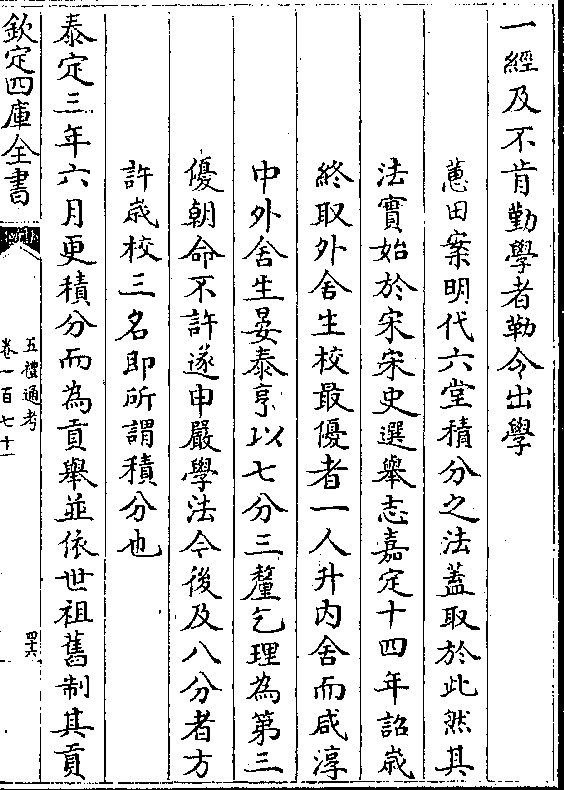 一經及不肯勤學者勒令出學
蕙田案明代六堂積分之法蓋取於此然其
法實始於宋宋史選舉志嘉定十四年詔歲
終取外舍生校最優者一人升内舍而咸淳
中外舍生晏泰亨以七分三釐乞理為第三
優朝命不許遂申嚴學法今後及八分者方
許歲校三名即所謂積分也
泰定三年六月更積分而為貢舉並依世祖舊制其貢
欽定四庫全書
五禮通考
卷一百七十一
四六